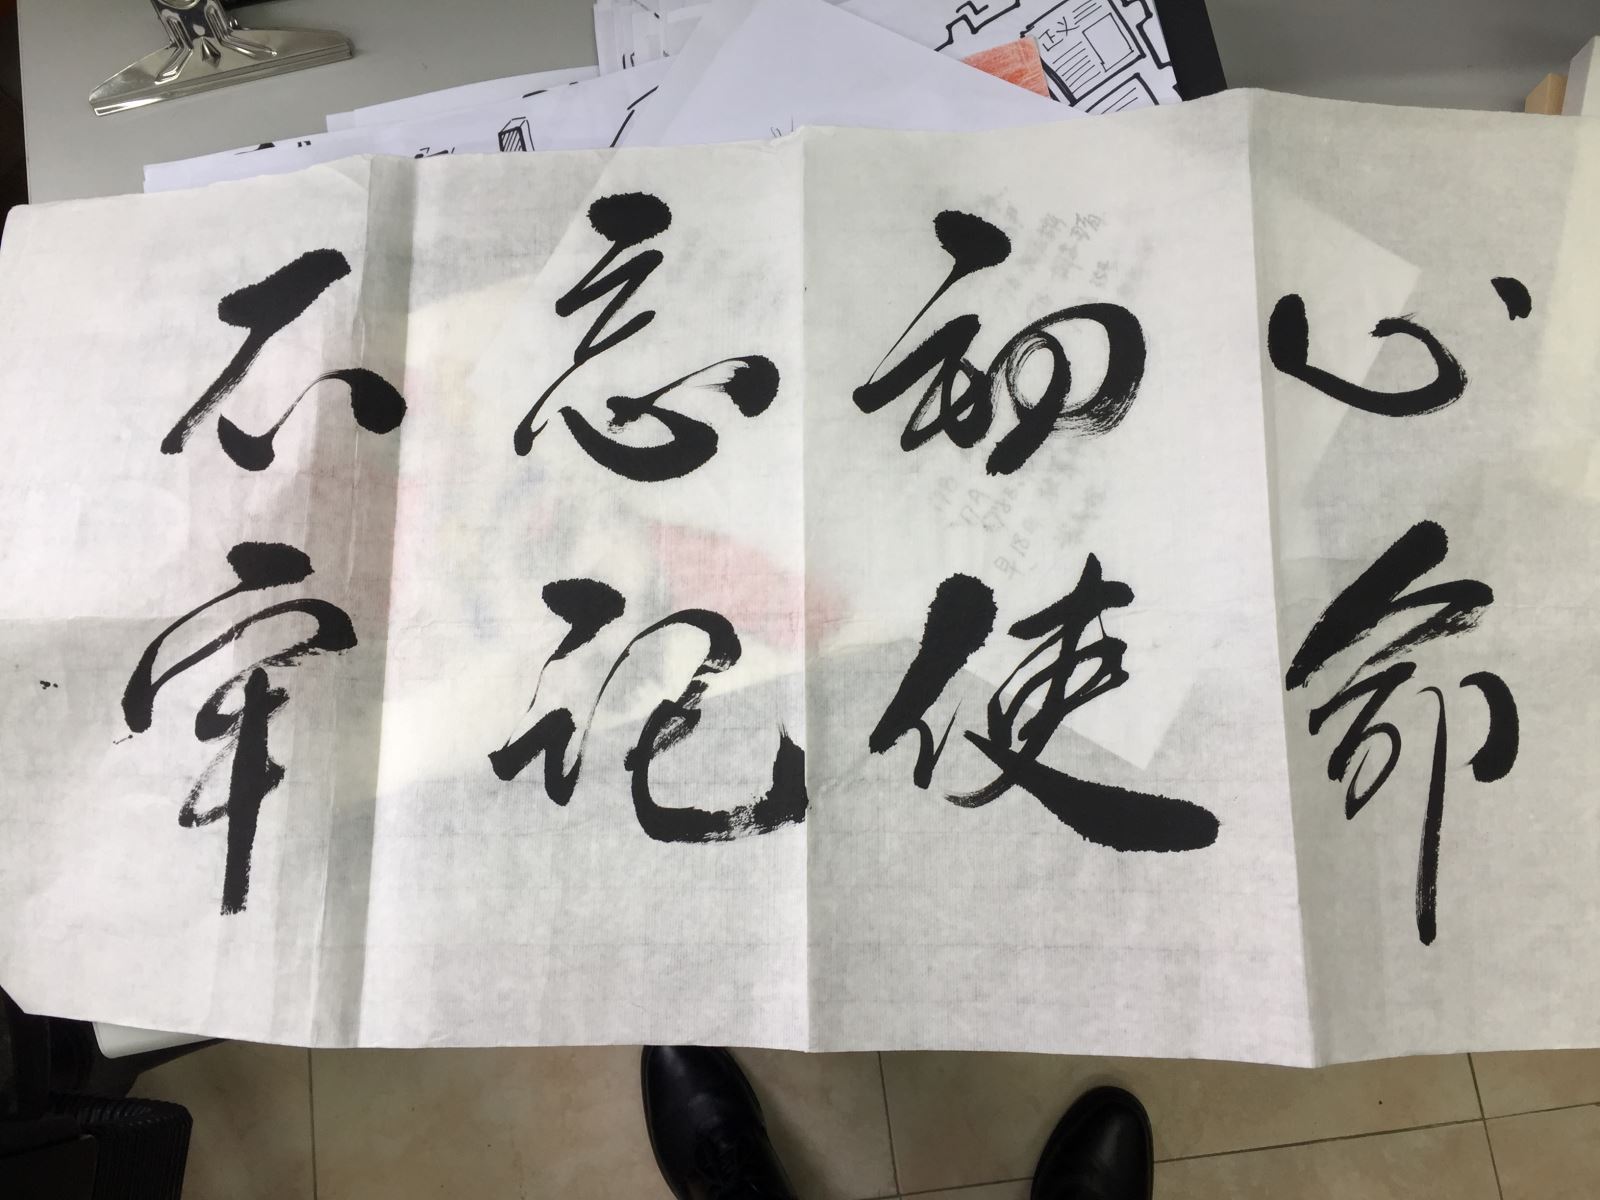 正义
不忘初心
牢记使命